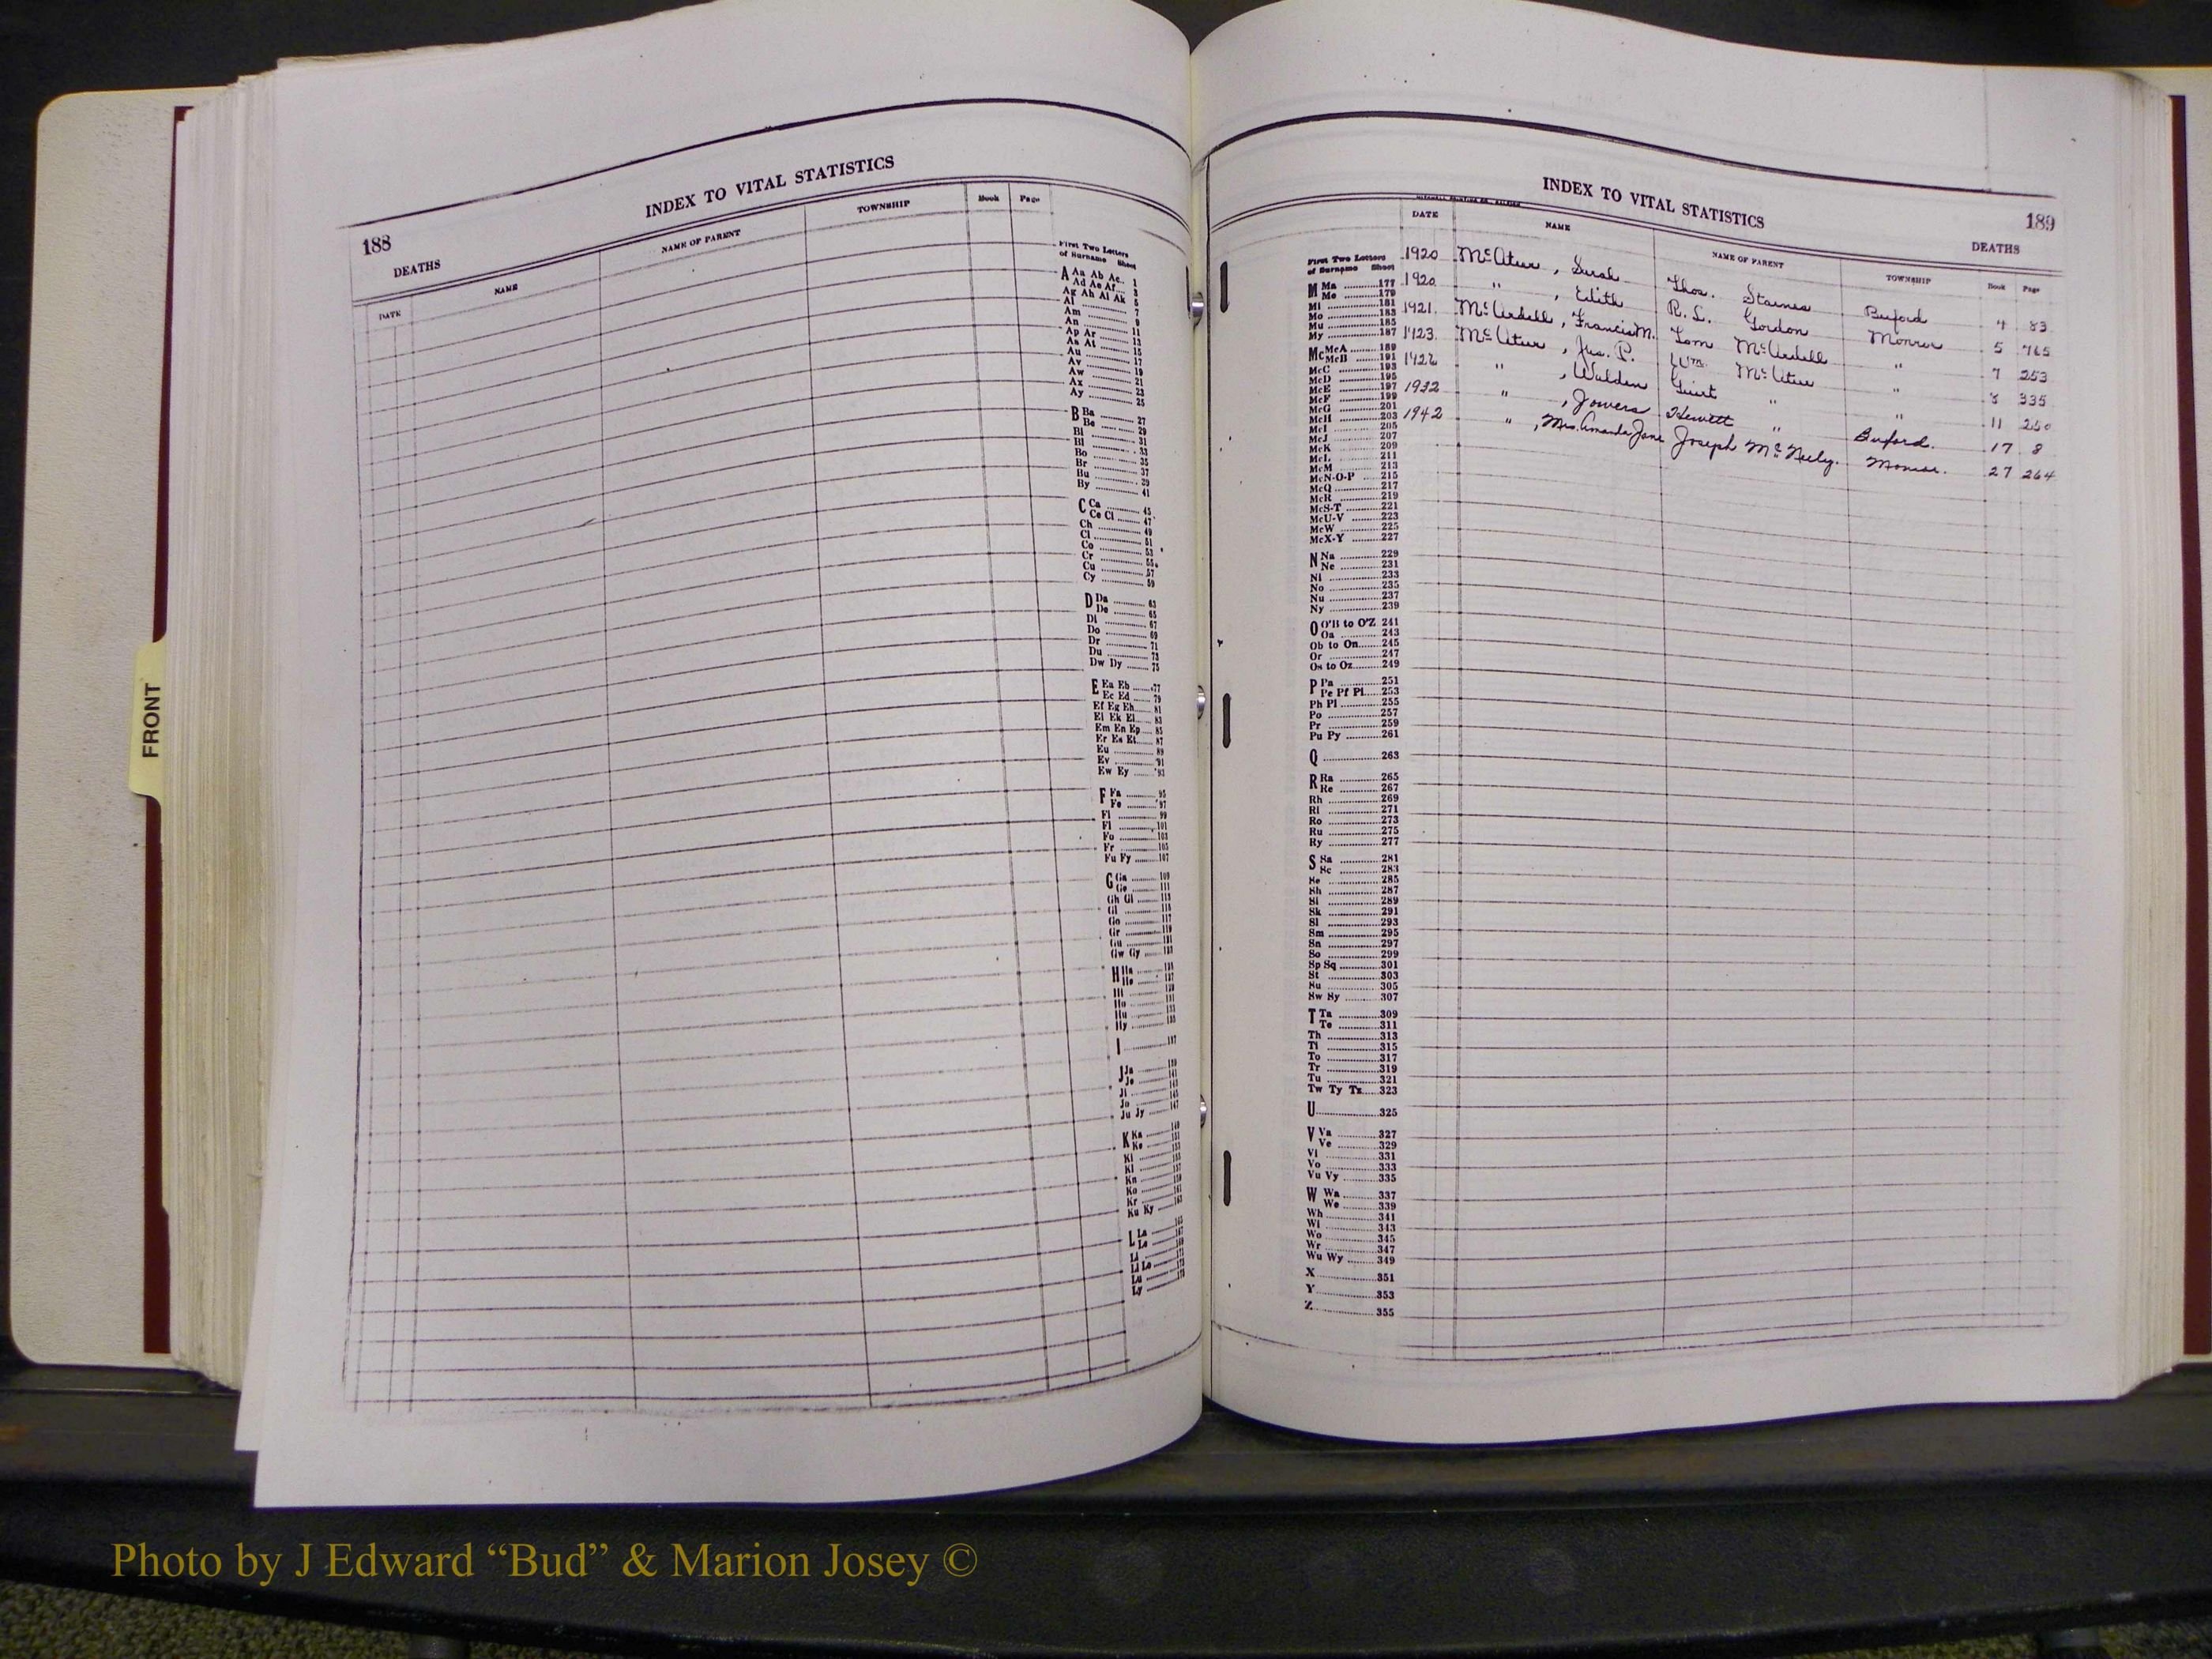 INDEX TO VITAL STATISTICS
188
DEATHS
DATE NAME NAME OF PARENT TOWNSHIP Book Page
First Two Letters
of Surname Sheet
A Aa Ab Ac 1
Ad Ae Af 3
Ag Ah Ai Ak 5
Al 7
Am 9
An 11
Ap Ar 13
As At 15
Au 17
Av 19
Aw 21
Ax 23
Ay 25
B Ba 27
Be 29
Bi 31
Bl 33
Bo 35
Br 37
Bu 39
By 41
C Ca 45
Ce Ci 47
Ch 49
Cl 51
Co 53
Cr 55
Cu 57
Cy 59
D Da 63
De 65
Di 67
Do 69
Dr 71
Du 73
Dw Dy 75
E Ea Eb 77
Ec Ed 79
Ef Eg Eh 81
Ei Ek El 83
Em En Ep 85
Er Es Et 87
Eu 89
Ev 91
Ew Ey 93
F Fa 95
Fe 97
Fi 99
Fl 101
Fo 103
Fr 105
Fu Fy 107
G Ga 109
Ge 111
Gh Gi 113
Gl 115
Go 117
Gr 119
Gu 121
Gw Gy 123
H Ha
He
Hi
Ho
Hu
Hy
I 137
J Ja
Je 141
Ji
Jo 145
Ju Jy 147
K Ka 149
Ke 151
Ki
Kl
Kn
Ko
Kr
Ku Ky 163
L La 165
Le 167
Li
Ll Lo
Lu
Ly
INDEX TO VITAL STATISTICS
189
DEATHS
DATE NAME NAME OF PARENT TOWNSHIP Book Page
1920 McAteer, Sarah Thos. Starnes Buford 4 83
1920 " , Edith R. L. Gordon Monroe 5 765
1921. McArdell, Francis M. Tom McArdell " 7 253
1923. McAteer, Jas. P. Wm McAteer " 8 335
1926 " , Walden " " 11 250
1932 " , Jowers Hewett " Buford. 17 8
1942 " , Mrs. Amanda Jane Joseph McNeely. Monroe. 27 264
First Two Letters
of Surname Sheet
M Ma 177
Me 179
Mi 181
Mo 183
Mu 185
My 187
Mc McA 189
McB 191
McC 193
McD 195
McE 197
McF 199
McG 201
McH 203
McI 205
McJ 207
McK 209
McL 211
McM 213
McN-O-P 215
McQ 217
McR 219
McS-T 221
McU-V 223
McW 225
McX-Y 227
N Na 229
Ne 231
Ni 233
No 235
Nu 237
Ny 239
O O'B to O'Z 241
Oa 243
Ob to On 245
Or 247
Os to Oz 249
P Pa 251
Pe Pf Pi 253
Ph Pl 255
Po 257
Pr 259
Pu Py 261
Q 263
R Ra 265
Re 267
Rh 269
Ri 271
Ro 273
Ru 275
Ry 277
S Sa 281
Sc 283
Se 285
Sh 287
Si 289
Sk 291
Sl 293
Sm 295
Sn 297
So 299
Sp Sq 301
St 303
Su 305
Sw Sy 307
T Ta 309
Te 311
Th 313
Ti 315
To 317
Tr 319
Tu 321
Tw Ty Tz 323
U 325
V Va 327
Ve 329
Vi 331
Vo 333
Vu Vy 335
W Wa 337
We 339
Wh 341
Wi 343
Wo 345
Wr 347
Wu Wy 349
X 351
Y 353
Z 355
FRONT
Photo by J Edward “Bud” & Marion Josey ©